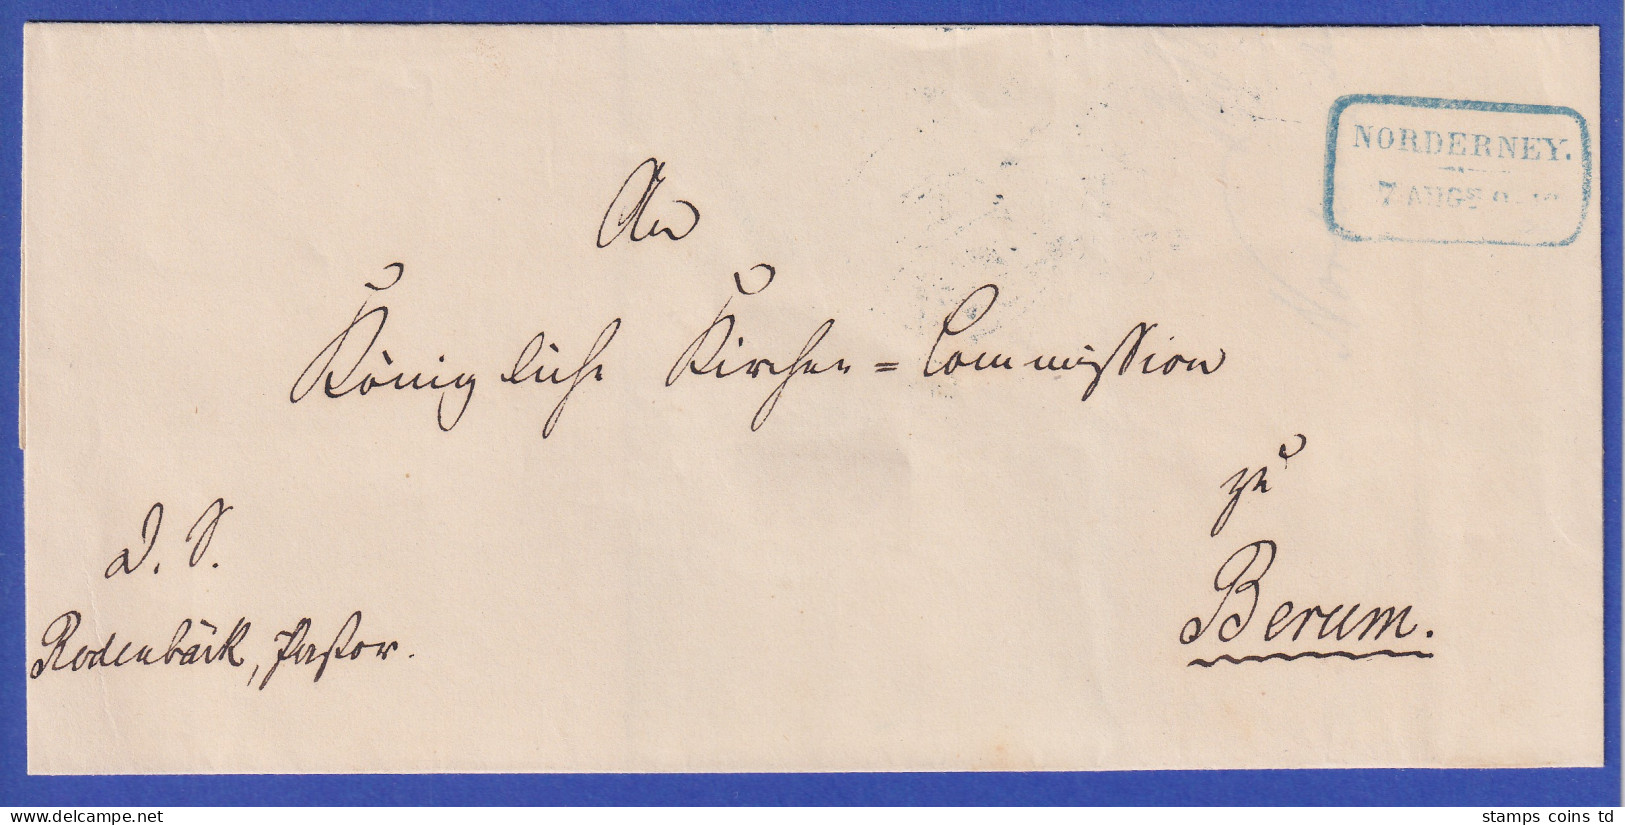 NORDERNEY.
7 AUGS
An
Königliche Kirchen=Commission
zu
Berum.
D. S.
Rodenbäck, Pastor.
stamps coins td